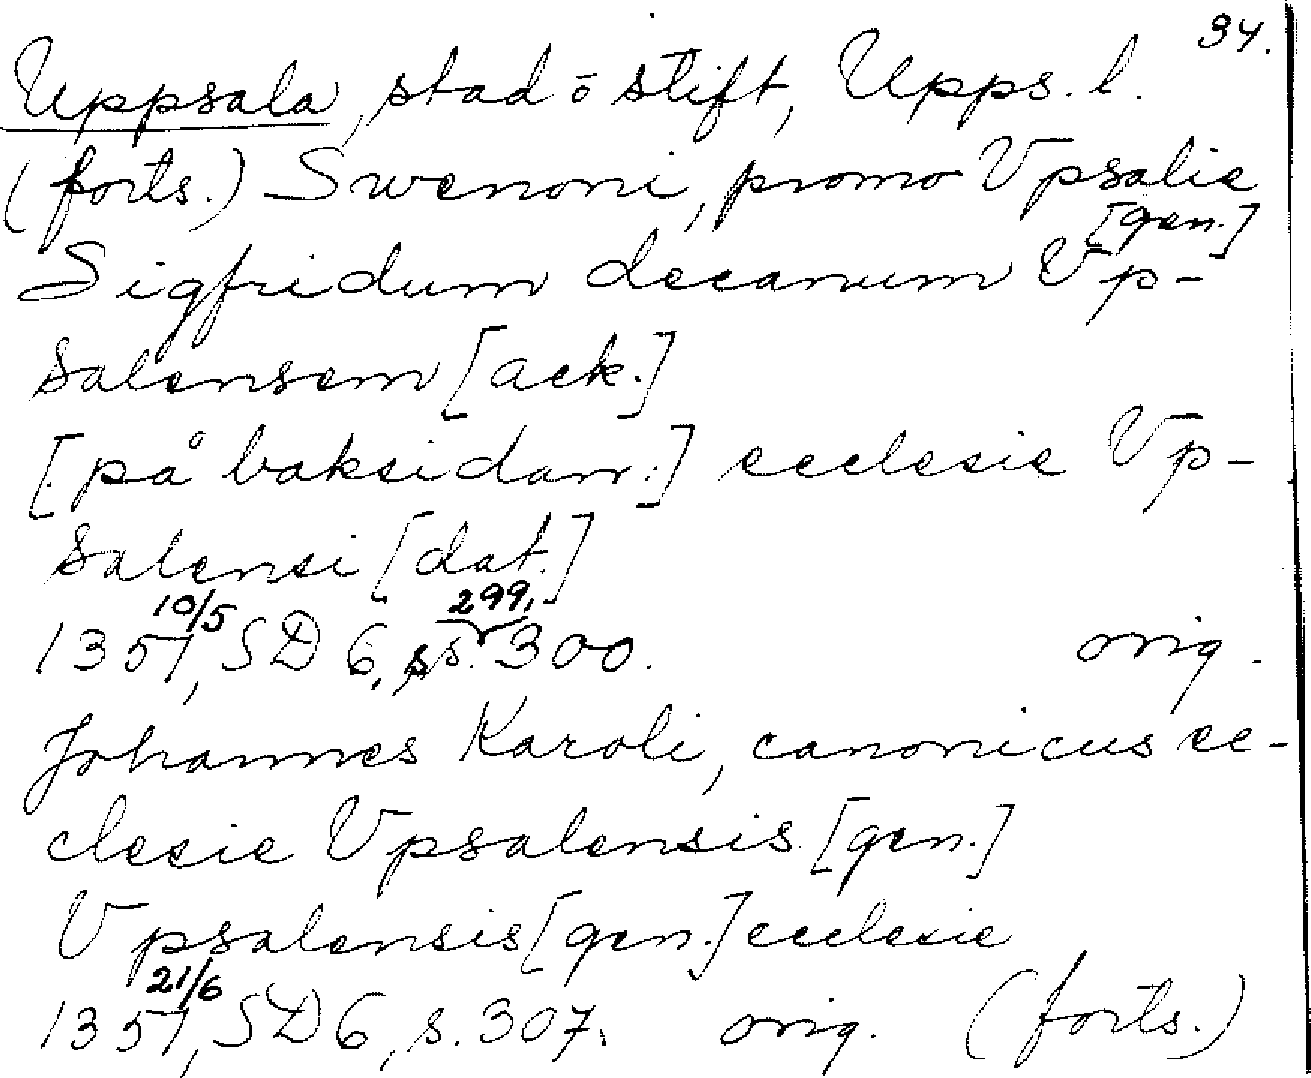 34.
Uppsala, stad o stift, Upps. l.
(forts.) Swenoni, promo Vpsalie
[gen.]
Sigfridum decanum Vp-
salensem [ack.]
[på baksidan:] ecclesie Vp-
salensi [dat.]
10/5 299,
1357, SD 6, ss. 300. orig.
Johannes Karoli, canonicus ec-
clesie Vpsalensis [gen.]
Vpsalensis [gen.] ecclesie
21/6
1357, SD 6, s. 307. orig. (forts.)